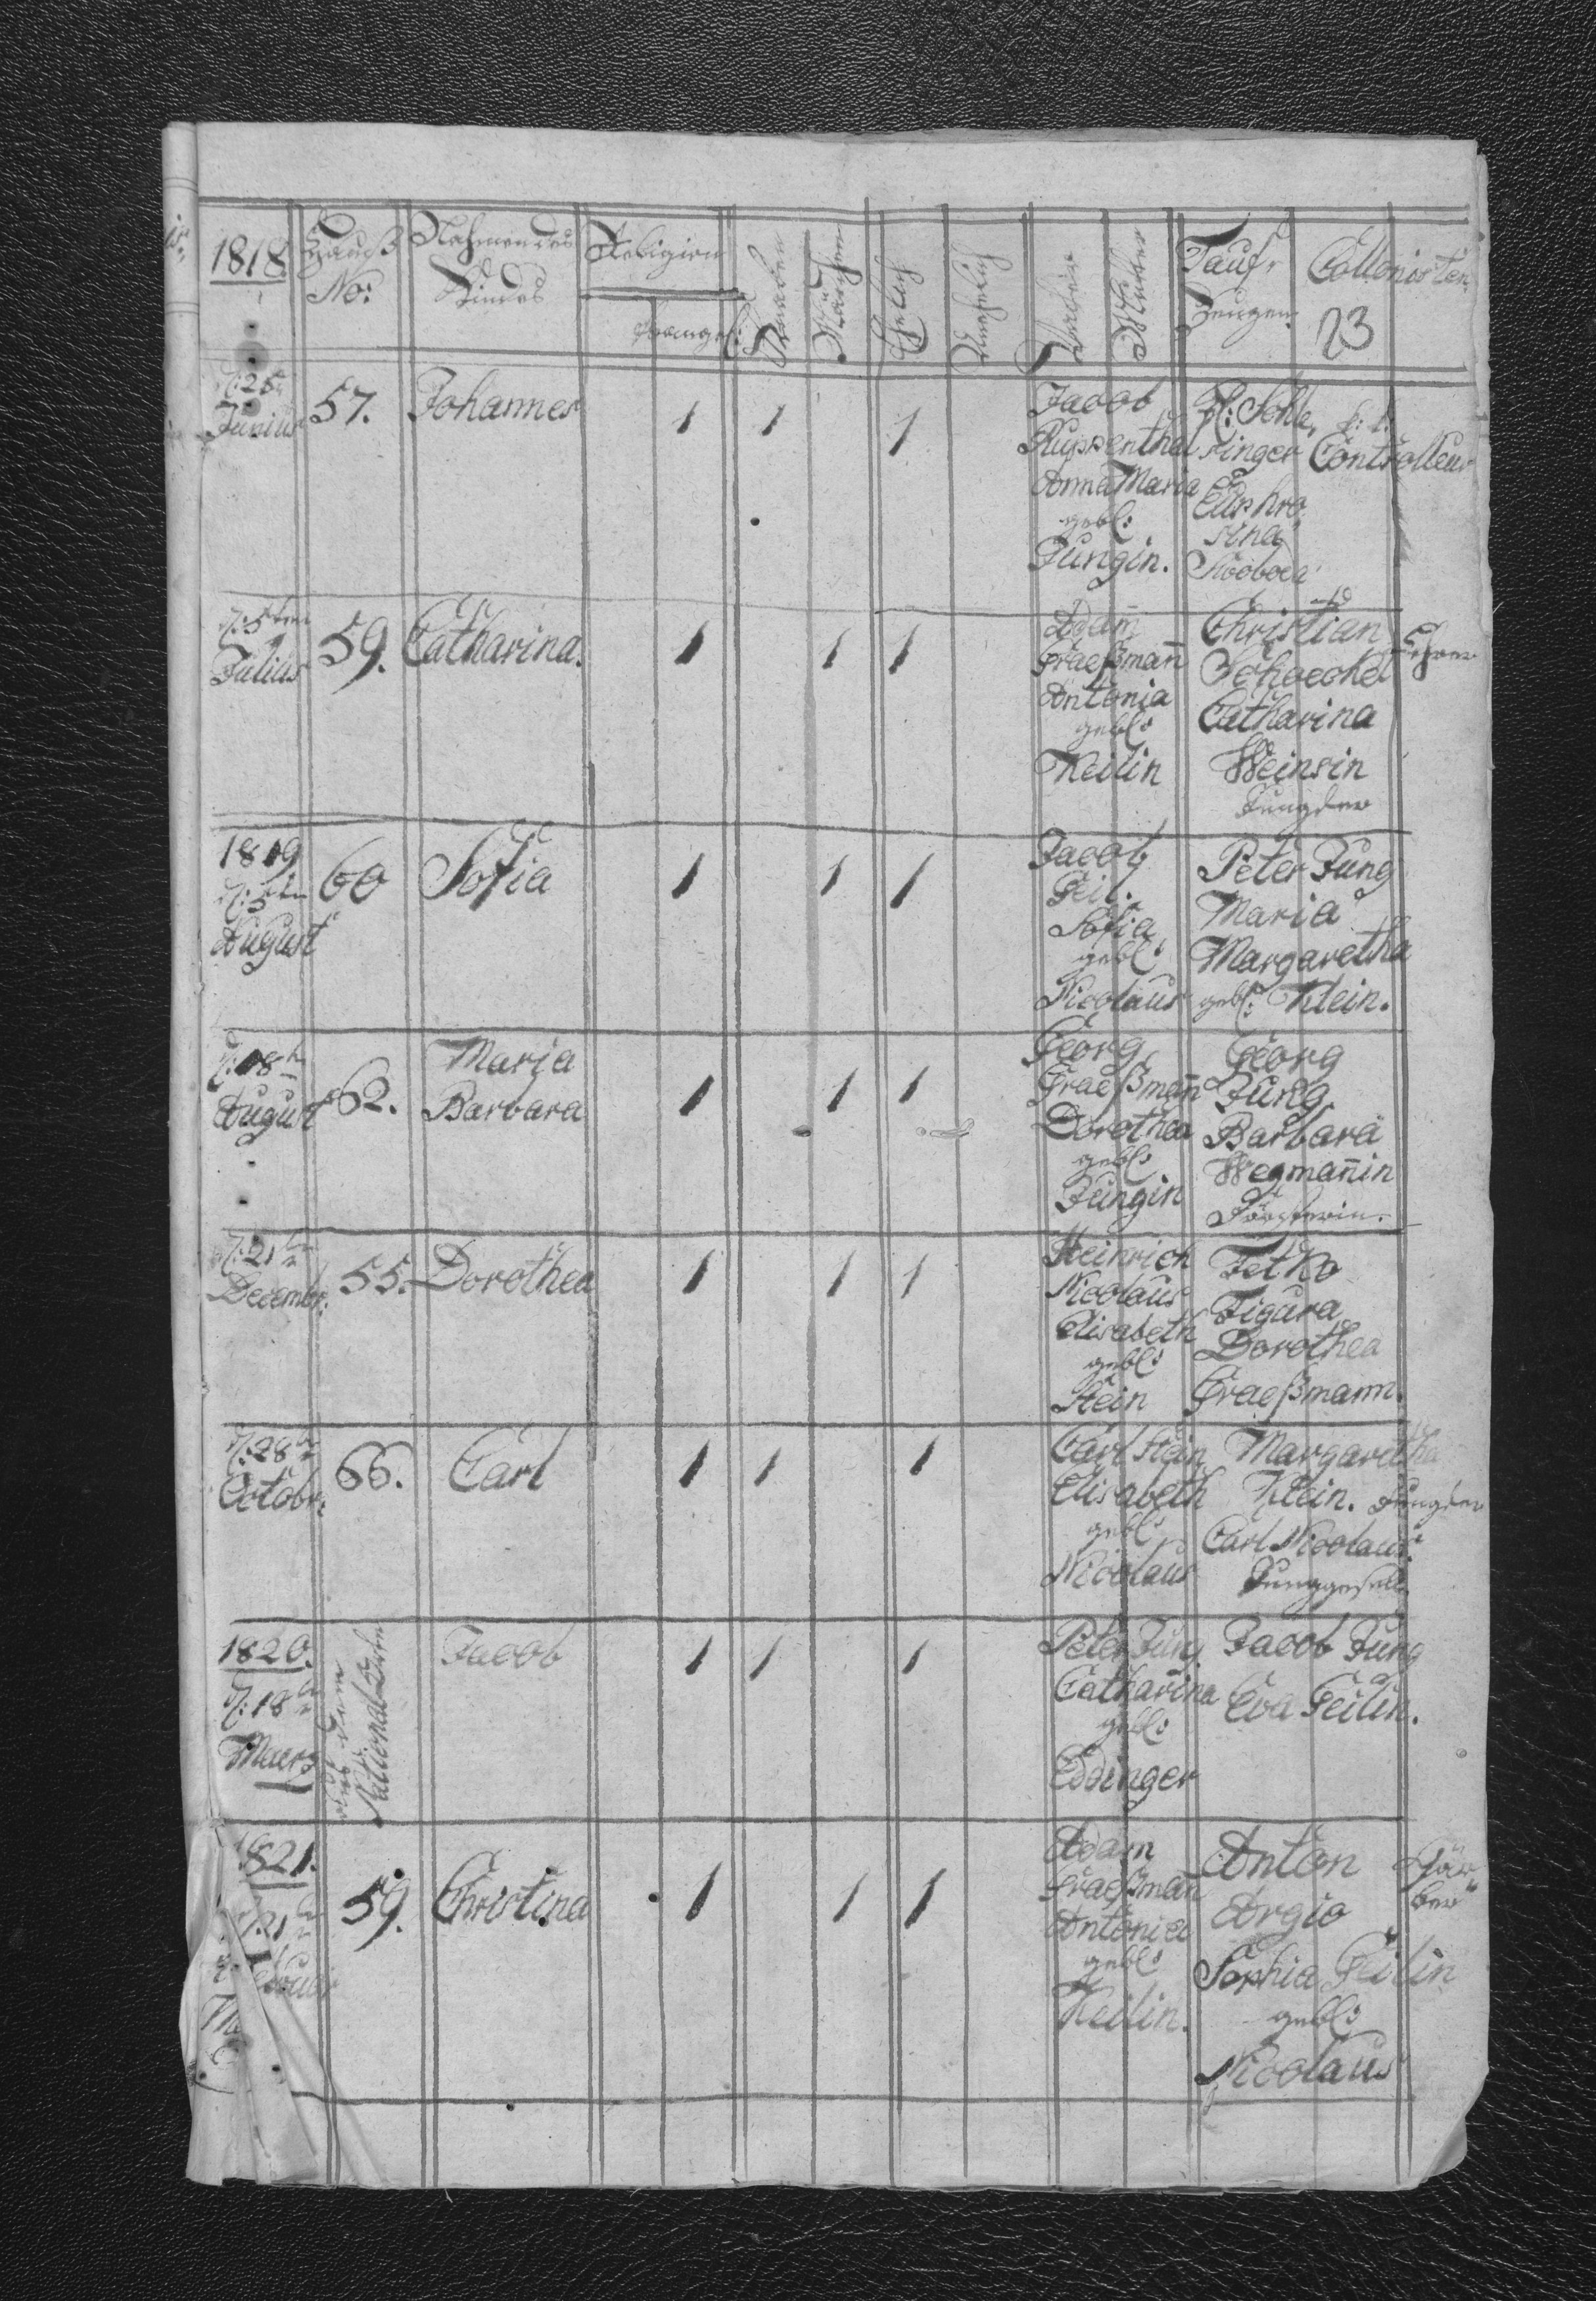 1818.
Hauß
No:
Nahmen des
Kindes
Religion
Evangel:
Knaben
Mädchen
Ehelich
Unehelich
Vater
Mutter
Tauf-
Zeugen:
Collonisten
23
Junius
57.
Johannes
1
1
1
Jacob
Ruppenthal
Anna Maria
gebl:
Jungin.
singer
Controlleur
Euphro
sina
d: 5ten
Julius
59.
Catharina.
1
1
1
Adam̄
Graeßman̄
Antonia
gebl:
Keilin
Christian
Catharina
Weinsin
1819
d: 5ten
August
60
Sofia
1
1
1
Jacob
Geil.
Sofia
gebl:
Nicolaus
Peter Jung
Maria
Margaretha
gebl: Klein.
d: 18t
August
62.
Maria
Barbara
1
1
1
Georg
Graeßman̄
Dorothea
gebl:
Jungin
Georg
Jung
Barbara
Wegman̄in
Försterin.
d: 21t
Decembr:
55.
Dorothea
1
1
1
Heinrich
Nicolaus
Elisabeth
gebl:
Stein
Fetko
Figura
Dorothea
Graeßmann.
d: 28t
Octobr:
66.
Carl
1
1
1
Carl Stein
Elisabeth
gebl:
Nicolaus
Margaretha
Klein.
Carl Nicolaus.
Junggesell
1820.
d: 18t
Maerz
aus dem
Jacob
1
1
1
Peter Jung
Catharina
gebl:
Eddinger
Jacob Jung
Eva Geilin.
1821.
59.
Christina
1
1
1
Adam
Graeßman̄
Antonia
gebl:
Keilin.
Anton
Argio
Sophia Geilin
gebl:
Nicolaus